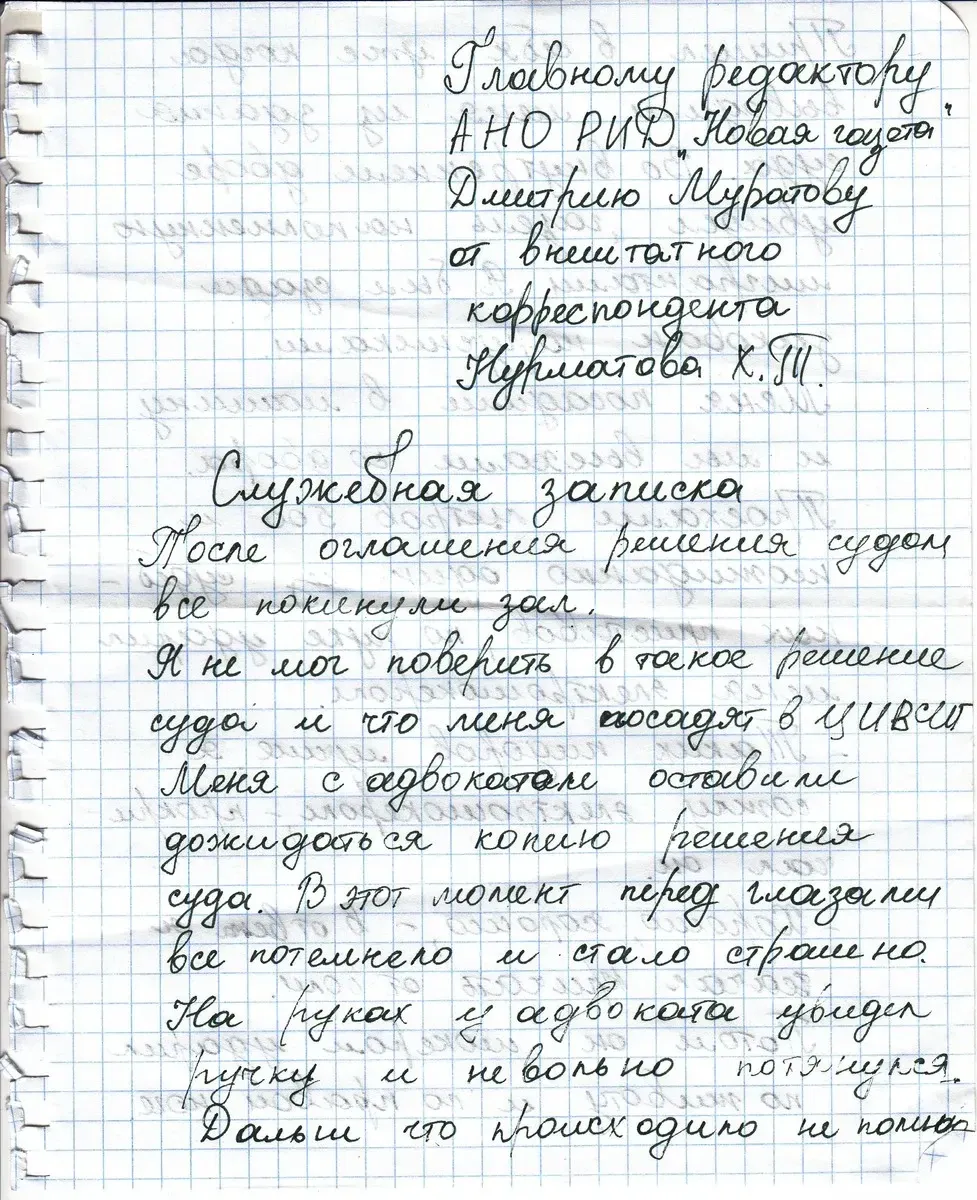 Главному редактору
АНО РИД „Новая газета"
Дмитрию Муратову
от внештатного
корреспондента
Нурматова Х.Т.
Служебная записка
После оглашения решения судом
все покинули зал.
Я не мог поверить в такое решение
суда и что меня посадят в ЦИВСИГ
Меня с адвокатом оставили
дожидаться копию решения
суда. В этот момент перед глазами
все потемнело и стало страшно.
На руках у адвоката увидел
ручку и невольно потянулся.
Дальш что происходило не помню